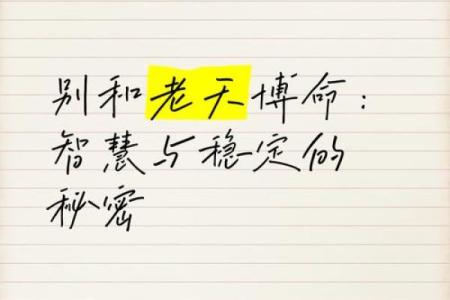 别和老天博命：
智慧与稳定的
秘密